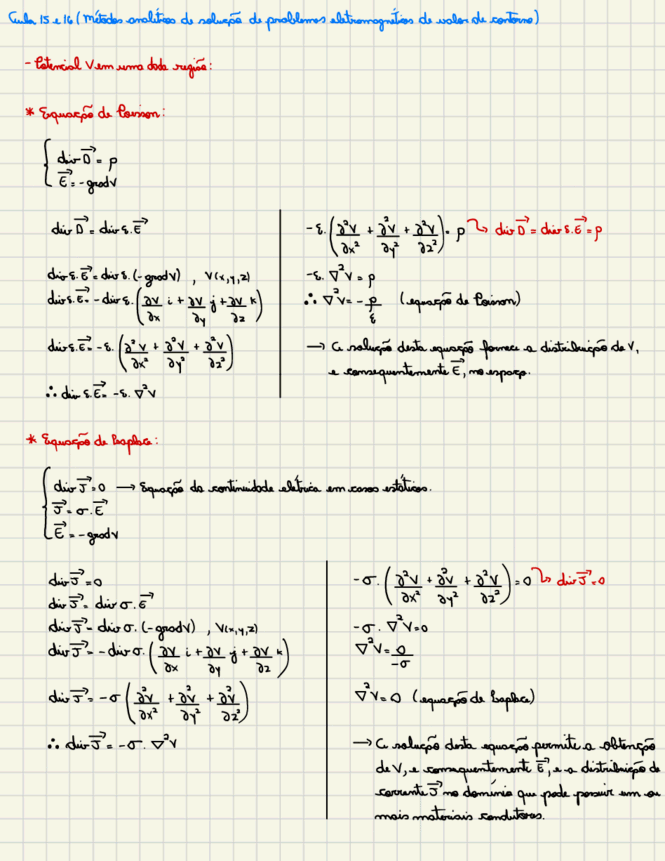 Aula 15 e 16 (Métodos analíticos de solução de problemas eletromagnéticos de valor de contorno)
- Potencial V em uma dada região:
* Equação de Poisson:
{ div D⃗ = ρ
E⃗ = -grad V
div D⃗ = div ε.E⃗
div ε.E⃗ = div ε.(-grad V) , V(x,y,z)
div ε.E⃗ = -div ε.(∂V/∂x i + ∂V/∂y j + ∂V/∂z k)
div ε.E⃗ = -ε.(∂²V/∂x² + ∂²V/∂y² + ∂²V/∂z²)
∴ div ε.E⃗ = -ε.∇²V
-ε.(∂²V/∂x² + ∂²V/∂y² + ∂²V/∂z²) = ρ ↳ div D⃗ = div ε.E⃗ = ρ
-ε.∇²V = ρ
∴ ∇²V = -ρ/ε (equação de Poisson)
→ A solução desta equação fornece a distribuição de V,
e consequentemente E⃗, no espaço.
* Equação de Laplace:
{ div J⃗ = 0 → Equação da continuidade elétrica em casos estáticos.
J⃗ = σ.E⃗
E⃗ = -grad V
div J⃗ = 0
div J⃗ = div σ.E⃗
div J⃗ = div σ.(-grad V) , V(x,y,z)
div J⃗ = -div σ.(∂V/∂x i + ∂V/∂y j + ∂V/∂z k)
div J⃗ = -σ(∂²V/∂x² + ∂²V/∂y² + ∂²V/∂z²)
∴ div J⃗ = -σ.∇²V
-σ.(∂²V/∂x² + ∂²V/∂y² + ∂²V/∂z²) = 0 ↳ div J⃗ = 0
-σ.∇²V = 0
∇²V = 0/-σ
∇²V = 0 (equação de Laplace)
→ A solução desta equação permite a obtenção
de V, e consequentemente E⃗, e a distribuição de
corrente J⃗ no domínio que pode possuir um ou
mais materiais condutores.